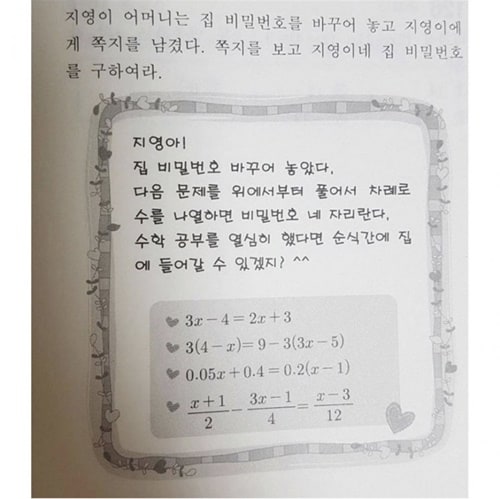 지영이 어머니는 집 비밀번호를 바꾸어 놓고 지영이에
게 쪽지를 남겼다. 쪽지를 보고 지영이네 집 비밀번호
를 구하여라.
지영아!
집 비밀번호 바꾸어 놓았다.
다음 문제를 위에서부터 풀어서 차례로
수를 나열하면 비밀번호 네 자리란다.
수학 공부를 열심히 했다면 순식간에 집
에 들어갈 수 있겠지? ^^
3x-4=2x+3
3(4-x)=9-3(3x-5)
0.05x+0.4=0.2(x-1)
(x+1)/2-(3x-1)/4=(x-3)/12